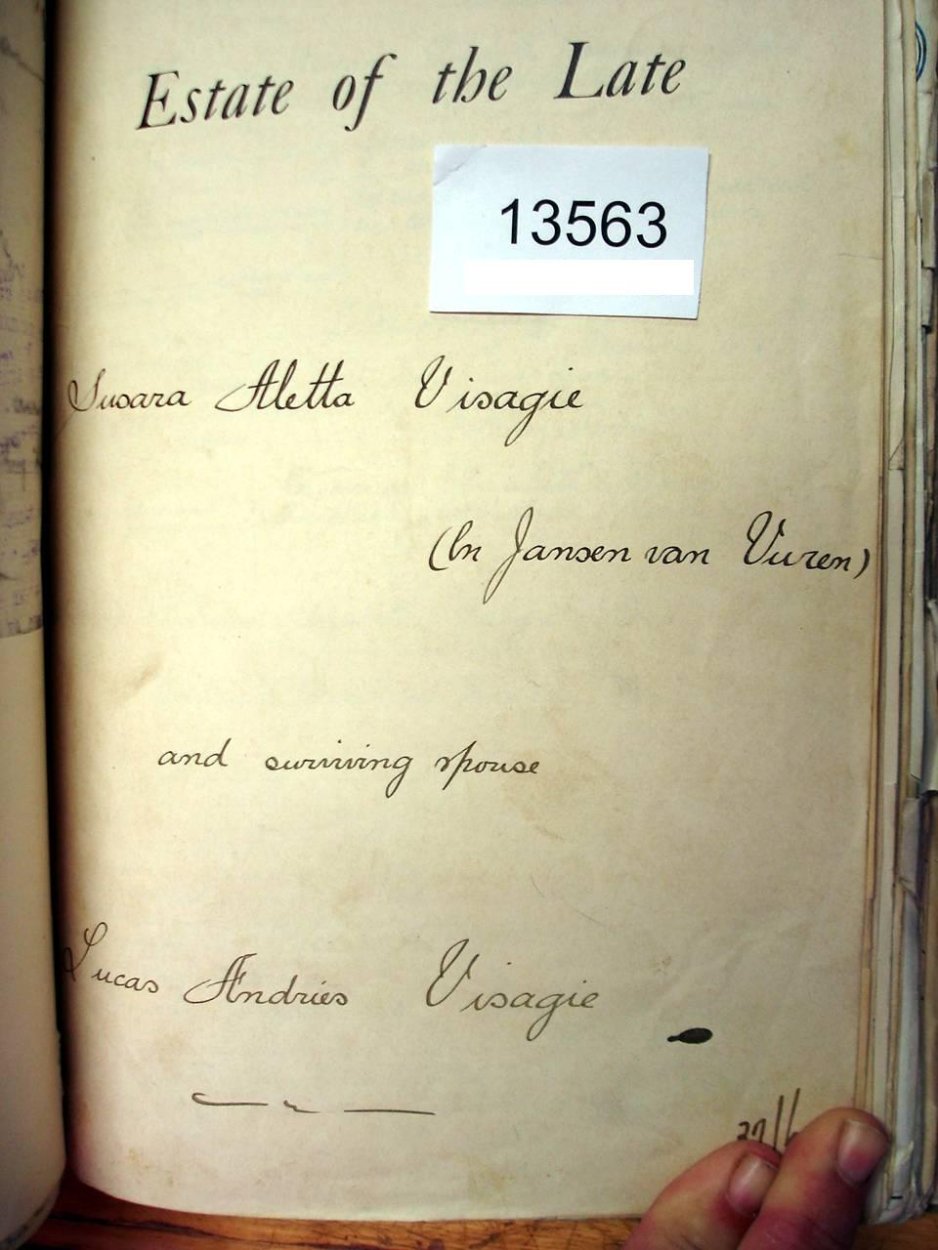 Estate of the Late
13563
Susara Aletta Visagie
(In Jansen van Vuren)
and surviving spouse
Lucas Andries Visagie